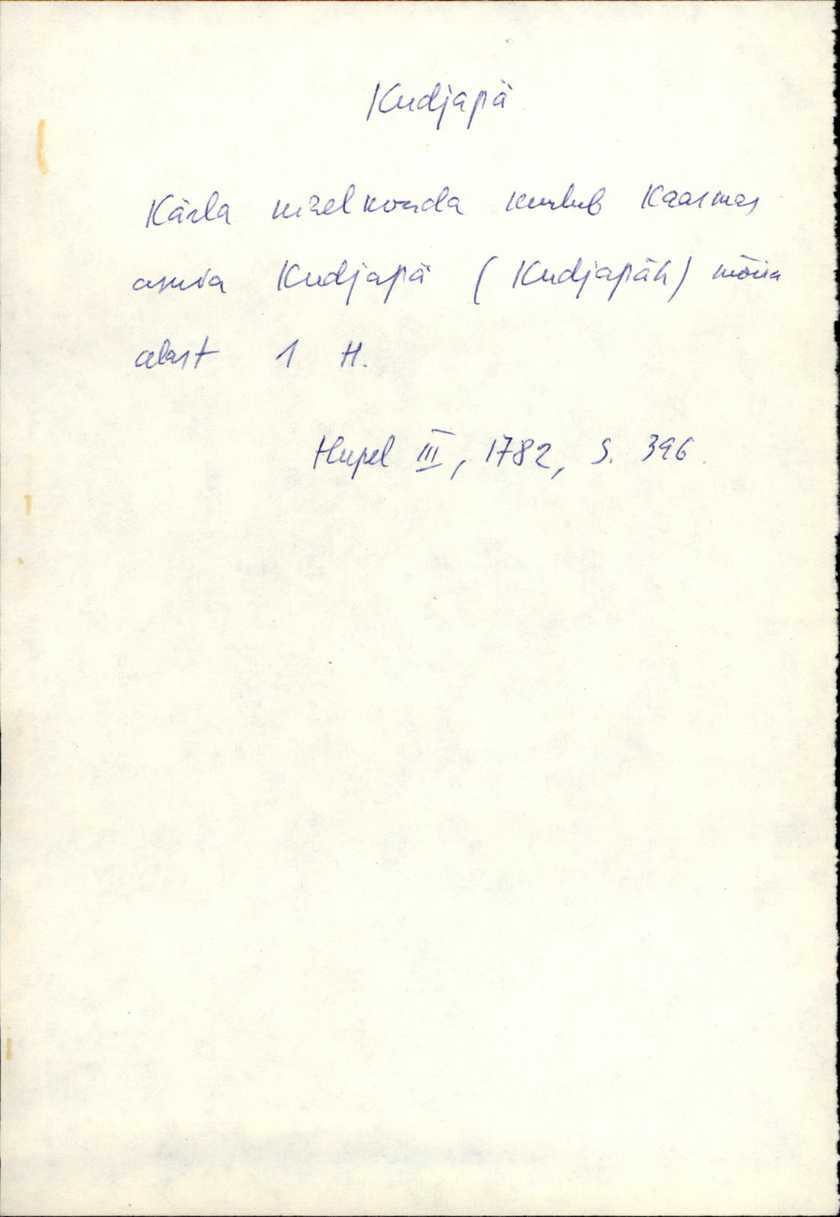 Kudjapä
Kärla kihelkonda kuulub Kaarmas
asuva Kudjapä (Kudjapäh) mõisa
alast 1 H.
Hupel III, 1782, S. 396.